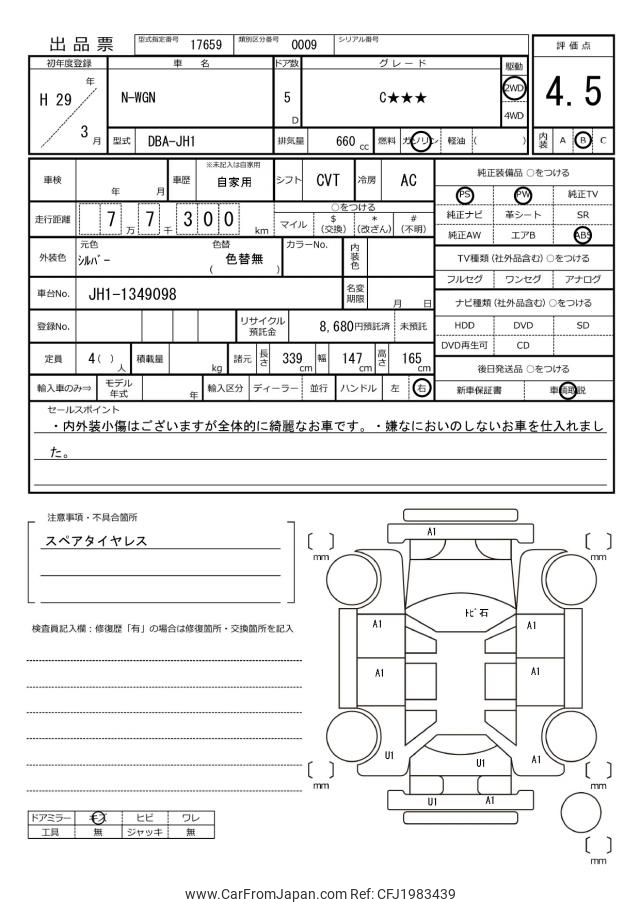 出品票 型式指定番号 17659 類別区分番号 0009 シリアル番号
評価点
4.5
内装 A B C
初年度登録 車 名 ドア数 グレード 駆動
H 29 年 3 月
N-WGN 5 D C★★★ 2WD
4WD
型式 DBA-JH1 排気量 660 cc 燃料 ガソリン 軽油 ( )
車検 年 月 車歴 ※未記入は自家用 自家用 シフト CVT 冷房 AC
純正装備品 ○をつける
PS PW 純正TV
純正ナビ 革シート SR
純正AW エアB ABS
走行距離 7 万 7 千 3 0 0 km
○をつける
マイル $ (交換) * (改ざん) # (不明)
外装色 元色 シルバー 色替 ( 色替無 ) カラーNo. 内装色
TV種類 (社外品含む) ○をつける
フルセグ ワンセグ アナログ
車台No. JH1-1349098 名変期限 月 日
ナビ種類 (社外品含む) ○をつける
HDD DVD SD
DVD再生可 CD
登録No. リサイクル預託金 8,680円預託済 未預託
定員 4 ( ) 人 積載量 kg 諸元 長さ 339 cm 幅 147 cm 高さ 165 cm
後日発送品 ○をつける
新車保証書 車輌取説
輸入車のみ⇒ モデル年式 年 輸入区分 ディーラー 並行 ハンドル 左 右
セールスポイント
・内外装小傷はございますが全体的に綺麗なお車です。・嫌なにおいのしないお車を仕入れまし
た。
注意事項・不具合箇所
スペアタイヤレス
検査員記入欄：修復歴「有」の場合は修復箇所・交換箇所を記入
ドアミラー キズ ヒビ ワレ
工具 無 ジャッキ 無
A1
mm
mm
トビ石
A1
A1
A1
A1
U1
U1
A1
U1
A1
mm
mm
mm
www.CarFromJapan.com Ref: CFJ1983439